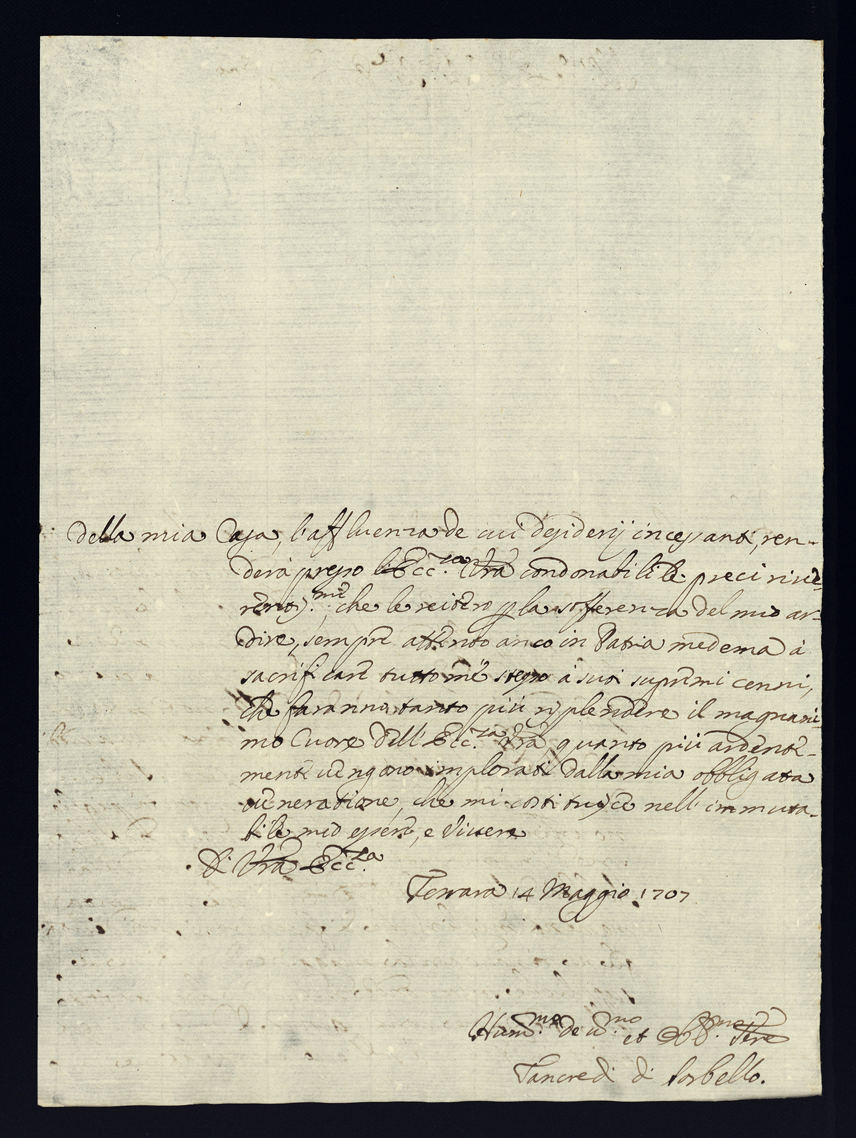 della mia Casa, l'affluenza de cui desiderij incessanti, ren-
derà presso l'Ecc.za Vrã condonabili le preci rive-
rentis.me che le reitero p la sofferenza del mio ar-
dire, sempre attento anco in Patria medema à
sacrificare tutto mè stesso à suoi supremi cenni,
che faranno tanto più risplendere il magnani-
mo Cuore dell'Ecc.za Vrã, quanto più ardente-
mente vengano implorati dalla mia obbligata
veneratione, che mi costituisce nell'immuta-
bile mio essere, e vivere
Di Vrã Ecc.za
Ferrara 14 Maggio 1707
Hum.mo dev.no et Obb.mo Sre
Tancredi di Sorbello.